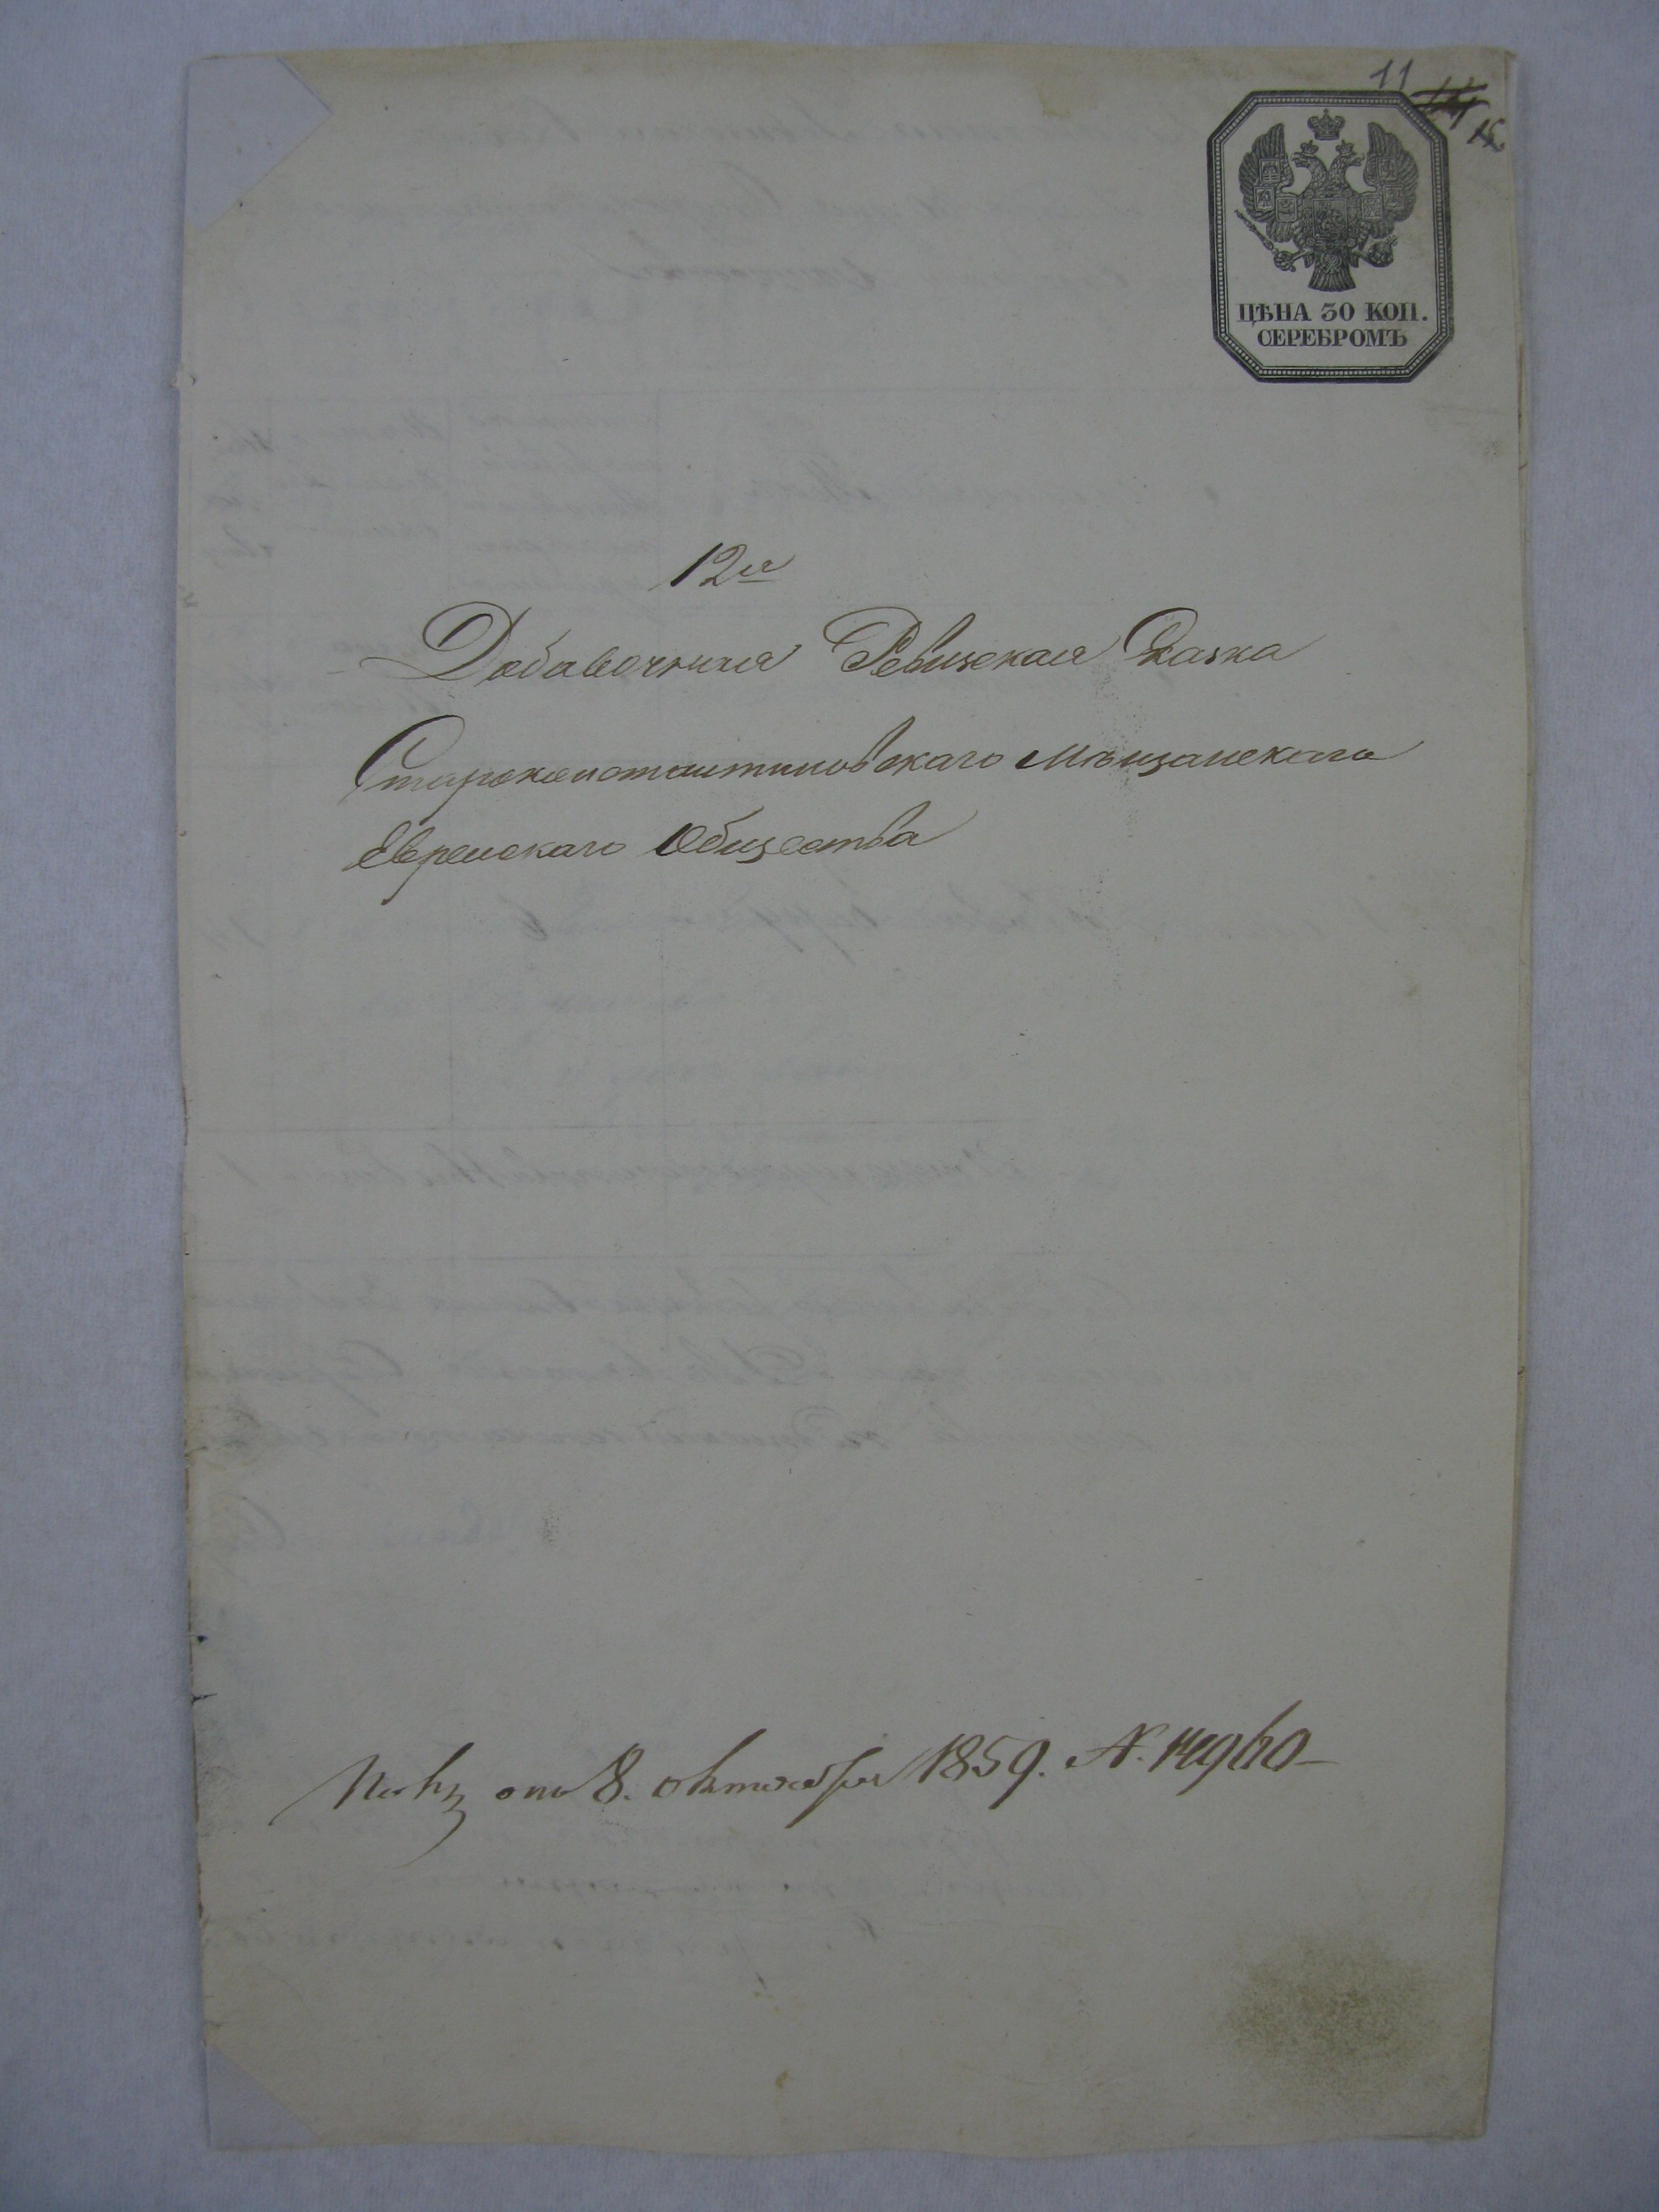 11
ЦѢНА 30 КОП.
СЕРЕБРОМЪ
12я
Добавочная Ревизская Сказка
Староконстантиновскаго Мѣщанскаго
Еврейскаго Общества
отъ 8. октября 1859. №.